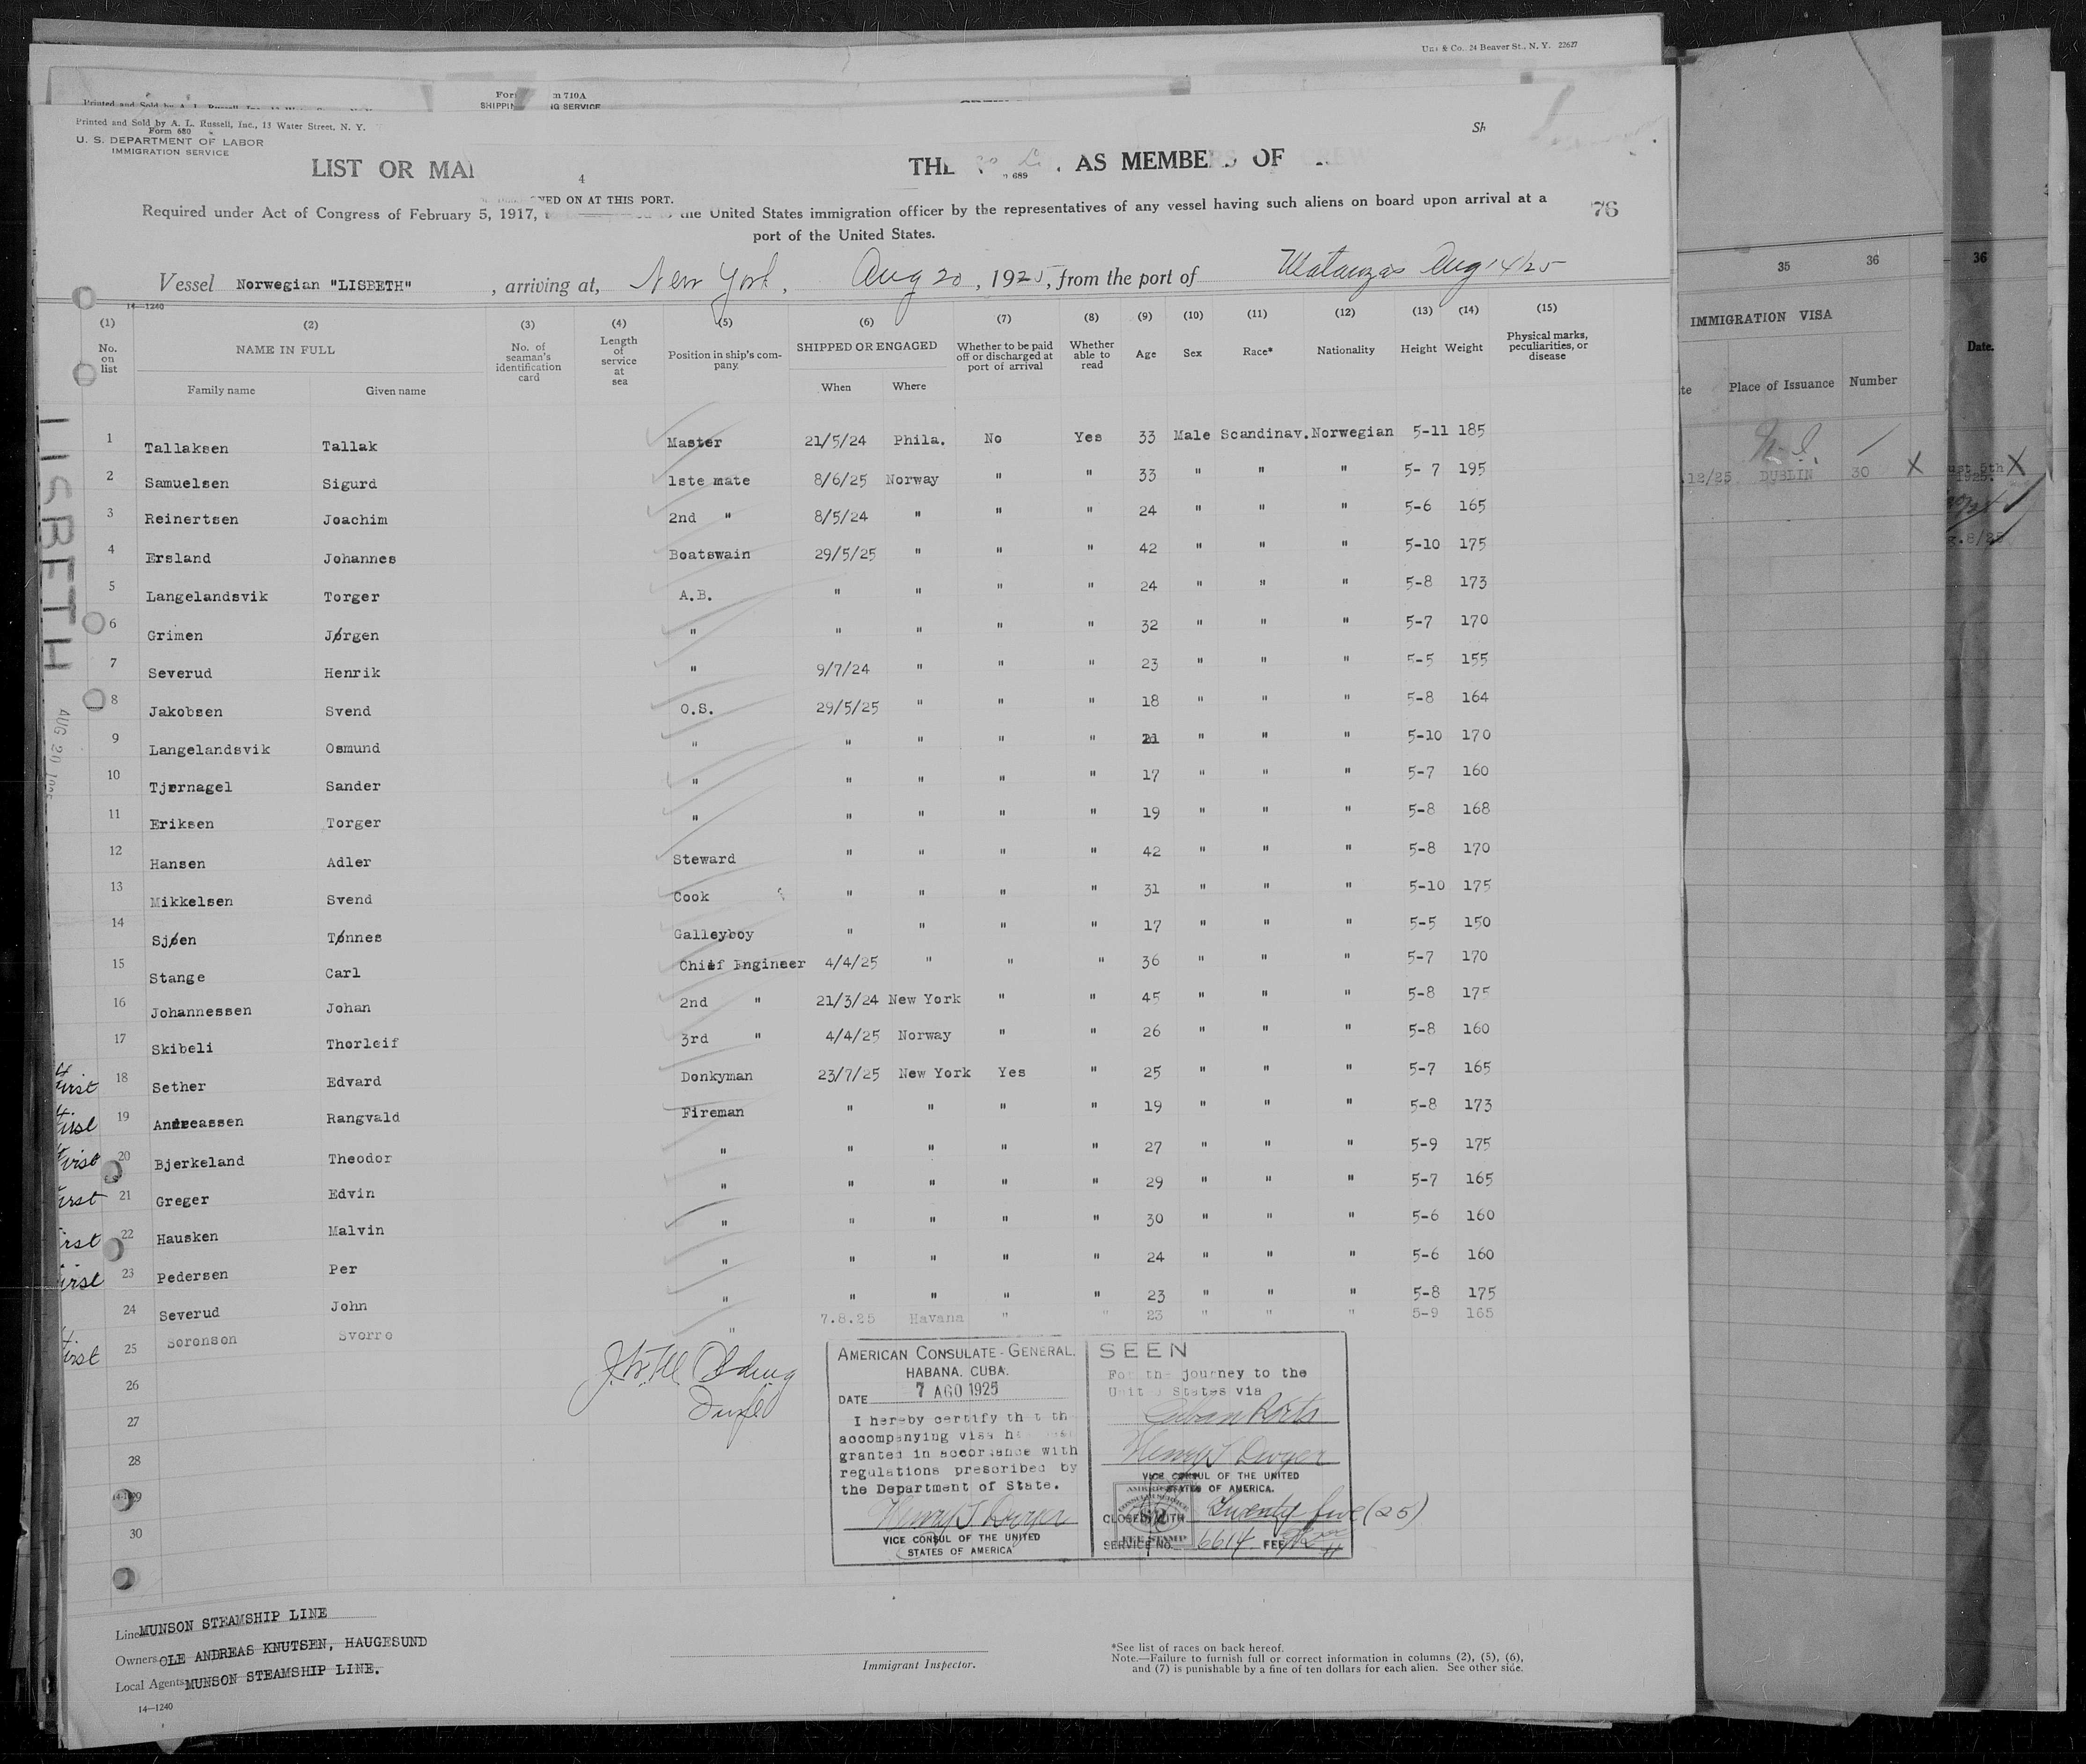 Uns & Co., 24 Beaver St., N. Y. 22627
Printed and Sold by A. L. Russell, Inc.
m 710A
SHIPPIN NG SERVICE
Printed and Sold by A. L. Russell, Inc., 13 Water Street, N. Y.
Form 680
U. S. DEPARTMENT OF LABOR
IMMIGRATION SERVICE
Sh
LIST OR MA THE AS MEMBERS OF
4
689
NED ON AT THIS PORT.
Required under Act of Congress of February 5, 1917, the United States immigration officer by the representatives of any vessel having such aliens on board upon arrival at a
port of the United States.
76
Vessel Norwegian "LISBETH", arriving at, New York, Aug 20, 1925, from the port of Matanzas Aug 14/25
14—1240
(1) (2) (3) (4) (5) (6) (7) (8) (9) (10) (11) (12) (13) (14) (15)
No. on list NAME IN FULL No. of seaman's identification card Length of service at sea Position in ship's company. SHIPPED OR ENGAGED Whether to be paid off or discharged at port of arrival Whether able to read Age Sex Race* Nationality Height Weight Physical marks, peculiarities, or disease
Family name Given name When Where
1 Tallaksen Tallak Master 21/5/24 Phila. No Yes 33 Male Scandinav. Norwegian 5-11 185
2 Samuelsen Sigurd 1ste mate 8/6/25 Norway " " 33 " " " 5- 7 195
3 Reinertsen Joachim 2nd " 8/5/24 " " " 24 " " " 5-6 165
4 Ersland Johannes Boatswain 29/5/25 " " " 42 " " " 5-10 175
5 Langelandsvik Torger A.B. " " " " 24 " " " 5-8 173
6 Grimen Jørgen " " " " " 32 " " " 5-7 170
7 Severud Henrik " 9/7/24 " " " 23 " " " 5-5 155
8 Jakobsen Svend O.S. 29/5/25 " " " 18 " " " 5-8 164
9 Langelandsvik Osmund " " " " " 21 " " " 5-10 170
10 Tjernagel Sander " " " " " 17 " " " 5-7 160
11 Eriksen Torger " " " " " 19 " " " 5-8 168
12 Hansen Adler Steward " " " " 42 " " " 5-8 170
13 Mikkelsen Svend Cook " " " " 31 " " " 5-10 175
14 Sjøen Tønnes Galleyboy " " " " 17 " " " 5-5 150
15 Stange Carl Chief Engineer 4/4/25 " " " 36 " " " 5-7 170
16 Johannessen Johan 2nd " 21/3/24 New York " " 45 " " " 5-8 175
17 Skibeli Thorleif 3rd " 4/4/25 Norway " " 26 " " " 5-8 160
First 18 Sether Edvard Donkyman 23/7/25 New York Yes " 25 " " " 5-7 165
First 19 Andreassen Rangvald Fireman " " " " 19 " " " 5-8 173
First 20 Bjerkeland Theodor " " " " " 27 " " " 5-9 175
First 21 Greger Edvin " " " " " 29 " " " 5-7 165
First 22 Hausken Malvin " " " " " 30 " " " 5-6 160
First 23 Pedersen Per " " " " " 24 " " " 5-6 160
24 Severud John " " " " " 23 " " " 5-8 175
First 25 Sorenson Sverre " 7.8.25 Havana " " 23 " " " 5-9 165
26
27
28
30
LISBETH
AUG 20
AMERICAN CONSULATE-GENERAL.
HABANA. CUBA.
DATE 7 AGO 1925
I hereby certify that th
accompanying visa h
granted in accordance with
regulations prescribed by
the Department of State.
Henry T. Dwyer
VICE CONSUL OF THE UNITED
STATES OF AMERICA
SEEN
For the journey to the
United States via
Cuban Ports
Henry T. Dwyer
VICE CONSUL OF THE UNITED
STATES OF AMERICA.
CLOSED WITH Twenty five (25)
FEE STAMP
SERVICE NO. 6614 FEE
Line MUNSON STEAMSHIP LINE
Owners OLE ANDREAS KNUTSEN, HAUGESUND
Local Agents MUNSON STEAMSHIP LINE.
14—1240
Immigrant Inspector.
*See list of races on back hereof.
Note.—Failure to furnish full or correct information in columns (2), (5), (6),
and (7) is punishable by a fine of ten dollars for each alien. See other side.
35 36
IMMIGRATION VISA
te Place of Issuance Number
12/25 DUBLIN 30 X
36
Date.
ust 5th X
1925.
g.8/25